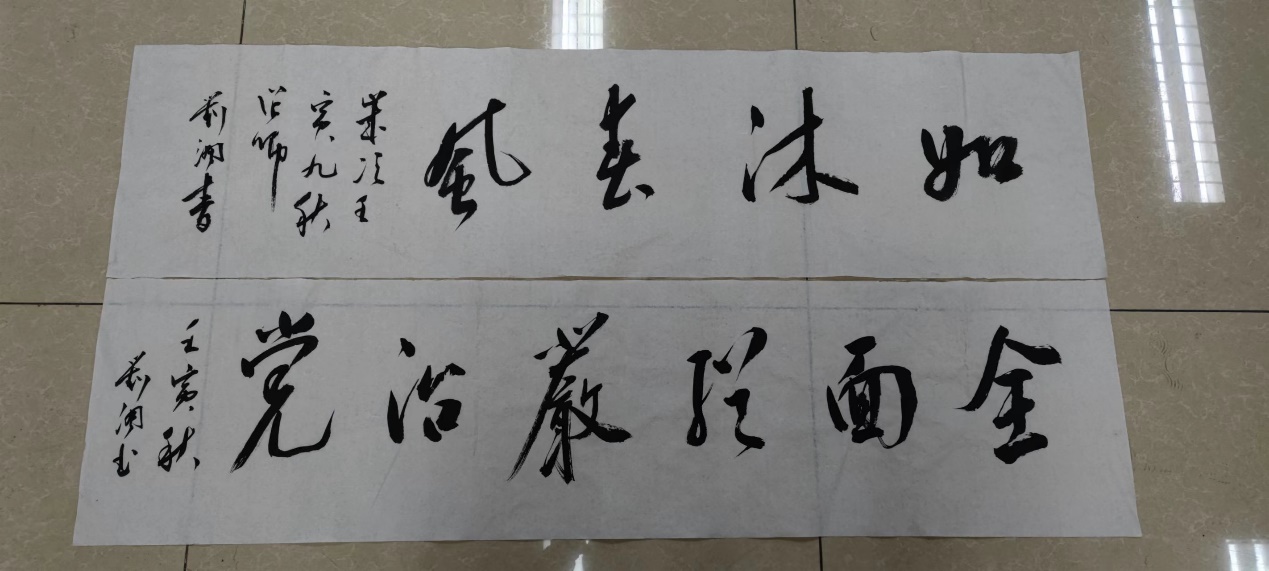 如沐春風
歲次壬
寅九秋
沿師
劉湖書
全面從嚴治党
壬寅秋
劉湖書